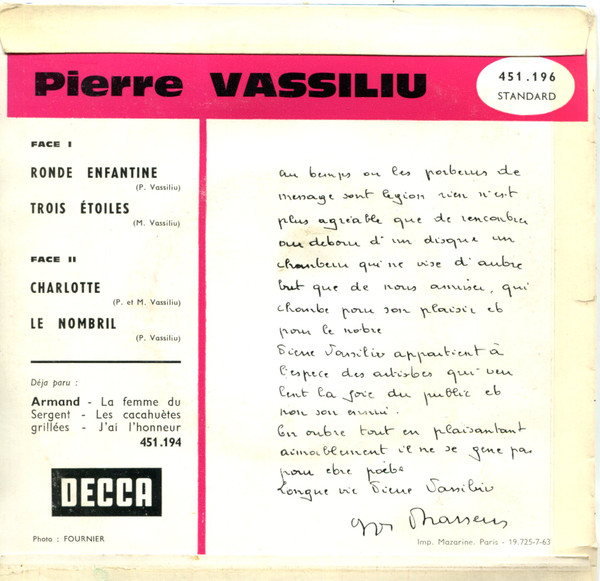 Pierre VASSILIU
451.196
STANDARD
FACE I
RONDE ENFANTINE
(P. Vassiliu)
TROIS ÉTOILES
(M. Vassiliu)
FACE II
CHARLOTTE
(P. et M. Vassiliu)
LE NOMBRIL
(P. Vassiliu)
Déja paru :
Armand - La femme du
Sergent - Les cacahuètes
grillées - J'ai l'honneur
451.194
DECCA
Photo : FOURNIER
au temps ou les porteurs de
message sont legion rien n'est
plus agréable que de rencontrer
au detour d'un disque un
chanteur qui ne vise d'autre
but que de nous amuser, qui
chante pour son plaisir et
pour le notre
Pierre Vassiliu appartient à
l'espece des artistes qui veu
lent la joie du public et
non son ennui.
En outre tout en plaisantant
aimablement il ne se gene pas
pour etre poète
Longue vie Pierre Vassiliu
Brassens
Imp. Mazarine. Paris - 19.725-7-63